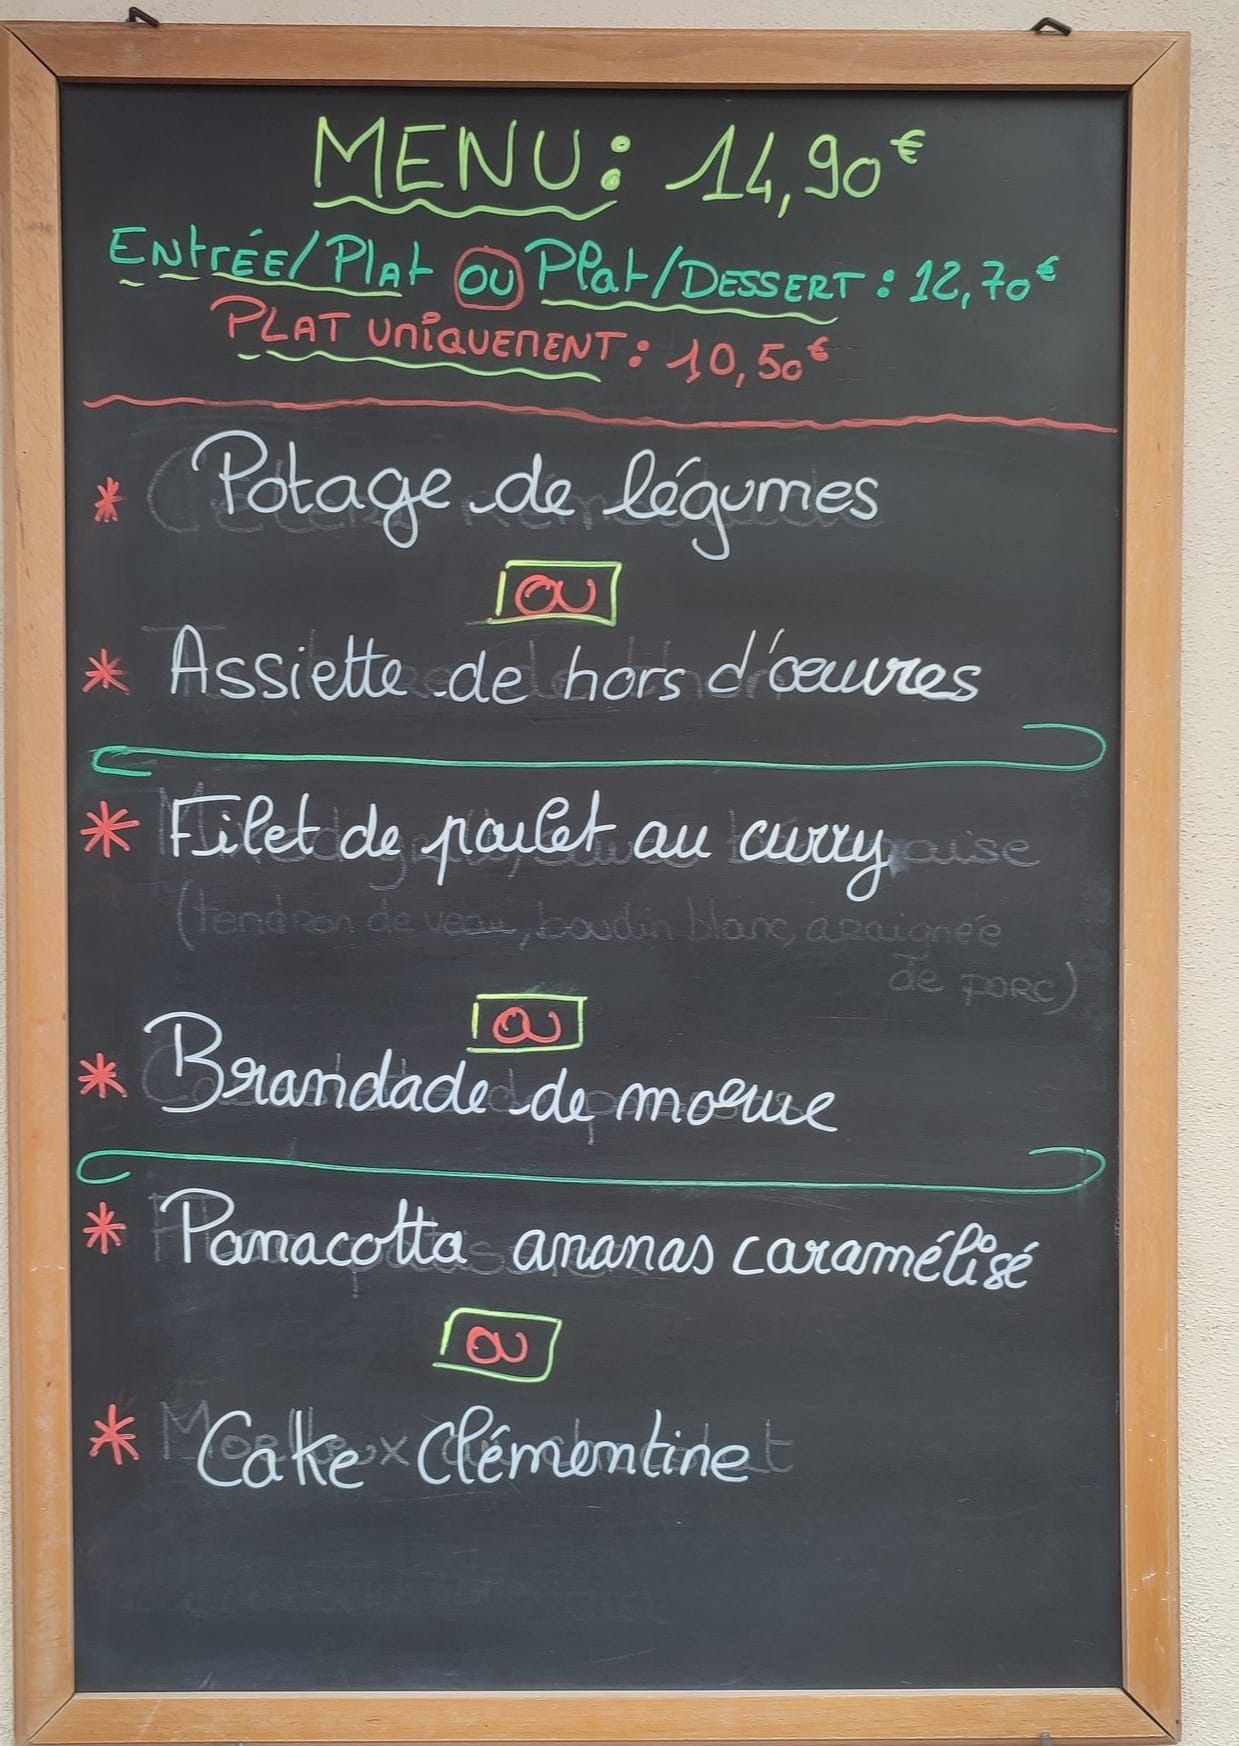 MENU: 14,90€
ENTRÉE/PLAT OU PLAT/DESSERT : 12,70€
PLAT UNIQUEMENT : 10,50€
* Potage de légumes
OU
* Assiette de hors d'œuvres
* Filet de poulet au curry
(tendron de veau, boudin blanc, araignée
de porc)
OU
* Brandade de morue
* Panacotta ananas caramélisé
OU
* Cake Clémentine